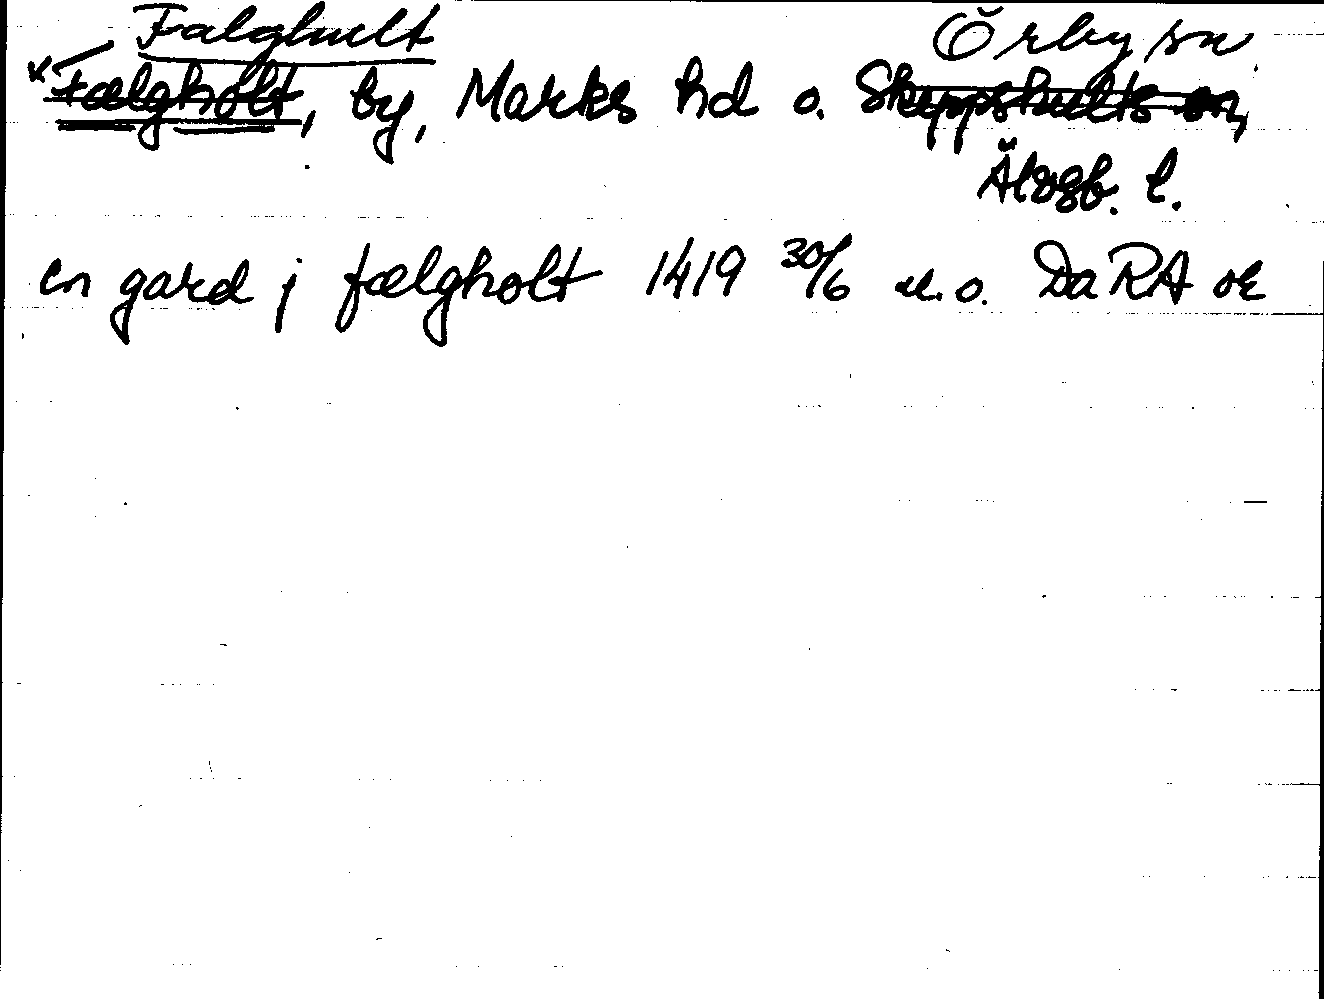 Falghult Örby sn
x Fælgholt, by, Marks hd o. Skeppshults sn,
Älvsb. l.
en gard j fælgholt 1419 30/6 u. o. Da RA or